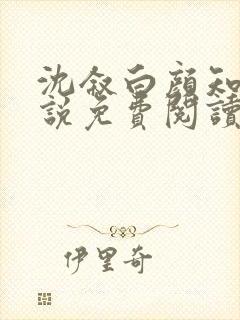 沈叙白顔知
說免費閱讀
伊里奇